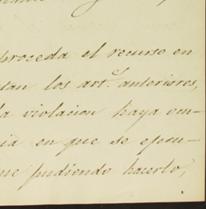 proceda el recurso en
tan los art.s anteriores,
la violacion haya em-
ia en que se ejecu-
ue pudiendo hacerlo,